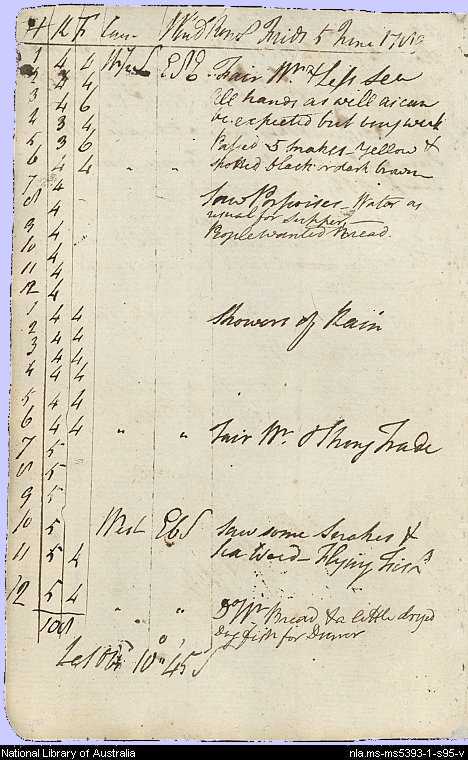 H K F Cours Wind Rem.s Frid.y 5 June 1789
1 4 4 W½S ESE Fair Wr. & Less Sea
2 4 4 All hands as well as can
3 4 6 be expected but very weak
4 3 4 Passed 5 snakes Yellow &
5 3 6 spotted black or dark brown
6 4 4 " "
7 4 Saw Porpoises - Water as
8 4 usual for supper
9 4 People wanted Bread.
10 4
11 4
12 4
1 4 4 Showers of Rain
2 4 4
3 4 4
4 4 4
5 4 4
6 4 4 " " Fair Wr. & Strong Trade
7 5
8 5
9 5
10 5 West EbS Saw some Snakes &
11 5 4 Sea Weed - Flying Fish
12 5 4 " " Do Wr. Bread & a little dryed
108 Dog fish for Dinner
Lat Obs 10° 45' S
National Library of Australia nla.ms-ms5393-1-s95-v